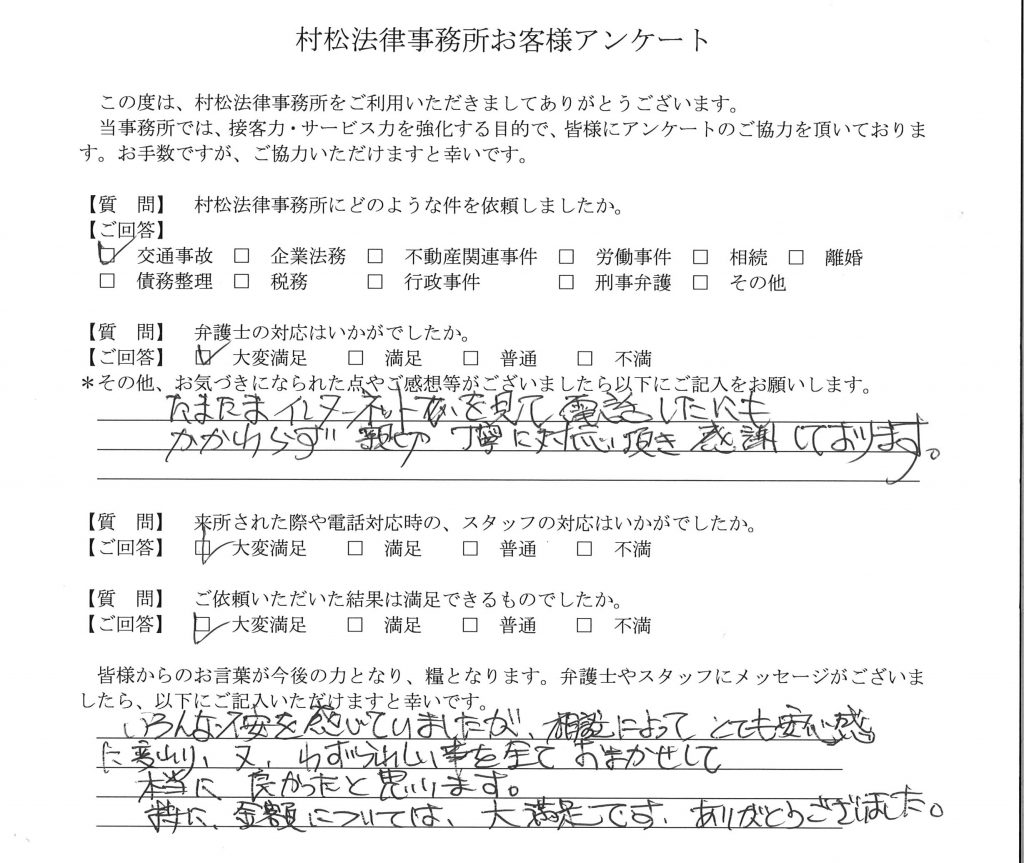 村松法律事務所お客様アンケート
この度は、村松法律事務所をご利用いただきましてありがとうございます。
当事務所では、接客力・サービス力を強化する目的で、皆様にアンケートのご協力を頂いておりま
す。お手数ですが、ご協力いただけますと幸いです。
【質　問】　村松法律事務所にどのような件を依頼しましたか。
【ご回答】
☑ 交通事故 □ 企業法務 □ 不動産関連事件 □ 労働事件 □ 相続 □ 離婚
□ 債務整理 □ 税務 □ 行政事件 □ 刑事弁護 □ その他
【質　問】　弁護士の対応はいかがでしたか。
【ご回答】 ☑ 大変満足 □ 満足 □ 普通 □ 不満
＊その他、お気づきになられた点やご感想等がございましたら以下にご記入をお願いします。
たまたまインターネット を見て電話したにも
かかわらず 親切 丁寧に対応頂き 感謝しております。
【質　問】　来所された際や電話対応時の、スタッフの対応はいかがでしたか。
【ご回答】 ☑ 大変満足 □ 満足 □ 普通 □ 不満
【質　問】　ご依頼いただいた結果は満足できるものでしたか。
【ご回答】 ☑ 大変満足 □ 満足 □ 普通 □ 不満
皆様からのお言葉が今後の力となり、糧となります。弁護士やスタッフにメッセージがございま
したら、以下にご記入いただけますと幸いです。
いろんな不安を感じていましたが、相談によって とても安心感
に変わり、又、わずらわしい事を全て おまかせして
本当に 良かったと思います。
特に、金額については、大満足です。ありがとうございました。